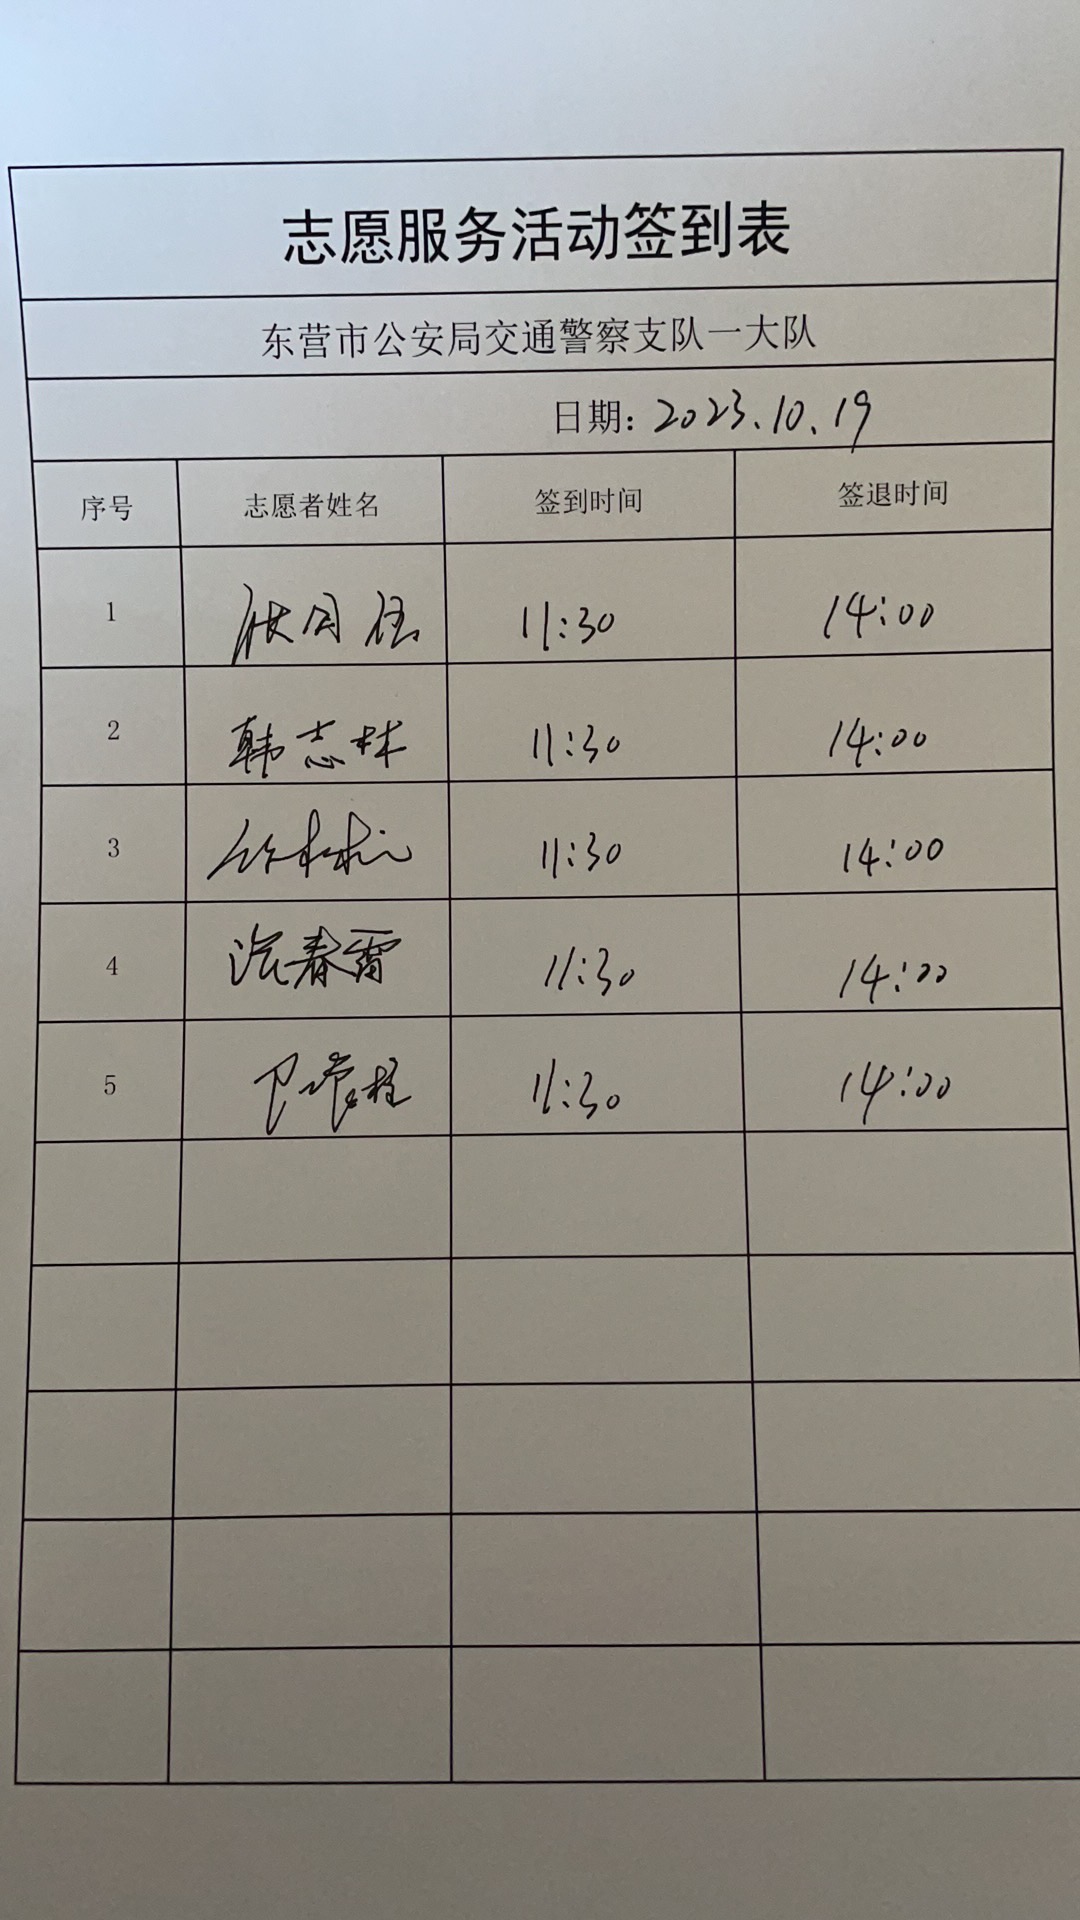 志愿服务活动签到表
东营市公安局交通警察支队一大队
日期：2023.10.19
序号 志愿者姓名 签到时间 签退时间
1 11:30 14:00
2 韩志林 11:30 14:00
3 11:30 14:00
4 春雷 11:30 14:00
5 11:30 14:00